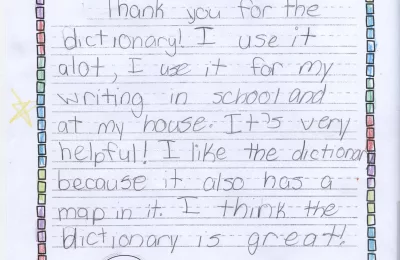 Thank you for the
dictionary! I use it
alot, I use it for my
writing in school and
at my house. It's very
helpful! I like the dictionary
because it also has a
map in it. I think the
dictionary is great!